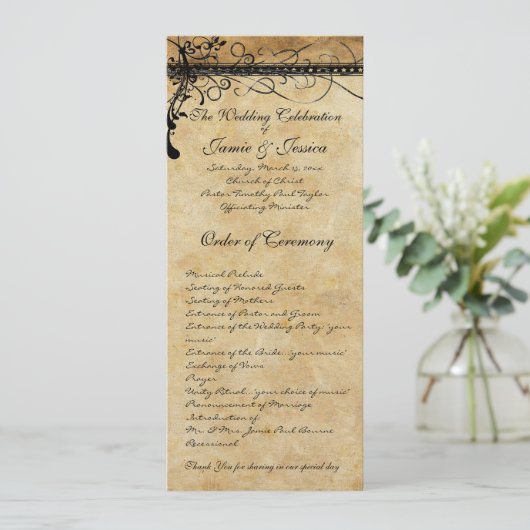 The Wedding Celebration
of
Jamie & Jessica
Saturday, March 13, 20xx
Church of Christ
Pastor Timothy Paul Taylor
Officiating Minister
Order of Ceremony
Musical Prelude
Seating of Honored Guests
Seating of Mothers
Entrance of Pastor and Groom
Entrance of the Wedding Party:"your
music"
Entrance of the Bride..."your music"
Exchange of Vows
Prayer
Unity Ritual..."your choice of music"
Pronouncement of Marriage
Introduction of:
Mr. & Mrs. Jamie Paul Bourne
Recessional
Thank You for sharing in our special day